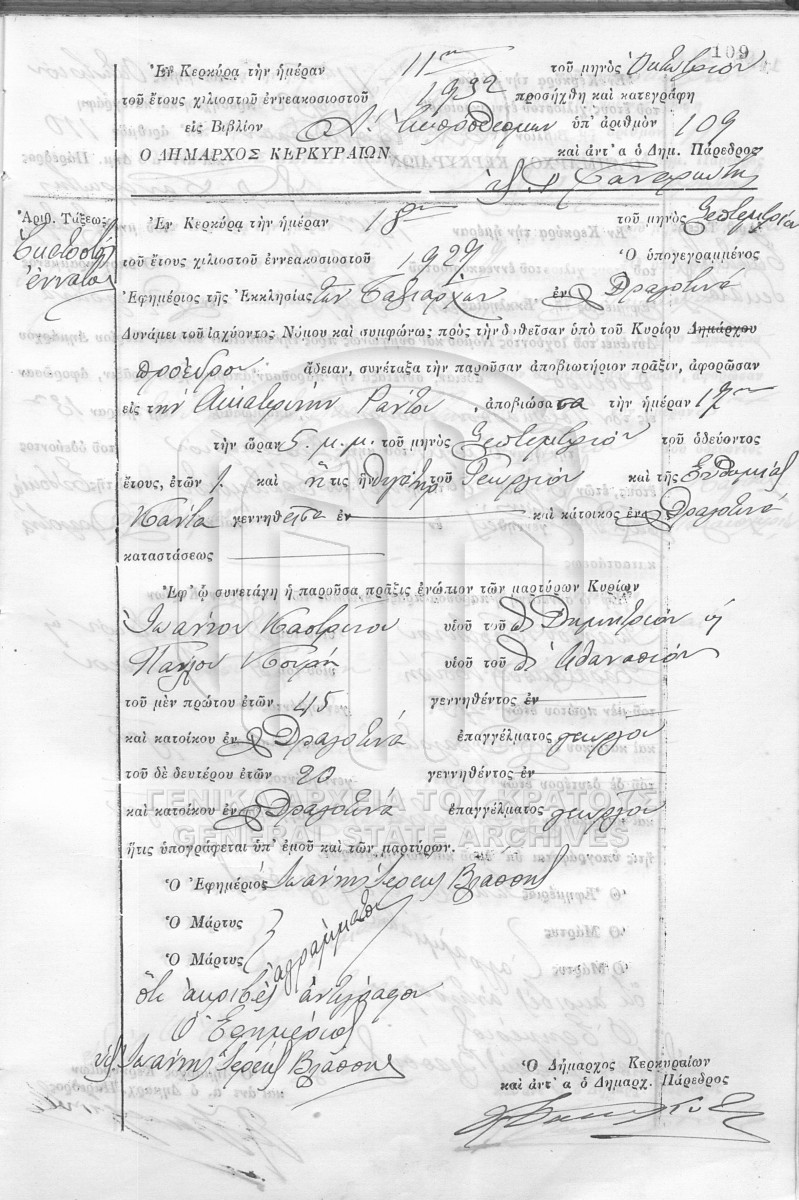 109
Ἐν Κερκύρᾳ τὴν ἡμέραν 11ην τοῦ μηνὸς Ὀκτωβρίου
τοῦ ἔτους χιλιοστοῦ ἐννεακοσιοστοῦ 1932 προσήχθη καὶ κατεγράφη
εἰς Βιβλίον Α΄ Ἐκπροθέσμων ὑπ' ἀριθμὸν 109
Ο ΔΗΜΑΡΧΟΣ ΚΕΡΚΥΡΑΙΩΝ καὶ ἀντ' α ὁ Δημ. Πάρεδρος
Ἀριθ. Τάξεως
Ἑκατοστὴ
ἐννάτη
Ἐν Κερκύρᾳ τὴν ἡμέραν 18ην τοῦ μηνὸς Σεπτεμβρίου
τοῦ ἔτους χιλιοστοῦ ἐννεακοσιοστοῦ 927 Ὁ ὑπογεγραμμένος
Ἐφημέριος τῆς Ἐκκλησίας τῶν Ταξιαρχῶν ἐν Δραγωτινᾷ
Δυνάμει τοῦ ἰσχύοντος Νόμου καὶ συμφώνως πρὸς τὴν δοθεῖσαν ὑπὸ τοῦ Κυρίου Δημάρχου
Προέδρου ἄδειαν, συνέταξα τὴν παροῦσαν ἀποβιωτήριον πρᾶξιν, ἀφορῶσαν
εἰς τὴν Αἰκατερίνην, ἀποβιώσασα τὴν ἡμέραν 17ην
τὴν ὥραν 5 μ.μ. τοῦ μηνὸς Σεπτεμβρίου τοῦ ὁδεύοντος
ἔτους, ἐτῶν 1 καὶ ἥτις ἦν θυγάτηρ τοῦ Γεωργίου καὶ τῆς Εὐθυμίας
γεννηθεῖσα ἐν καὶ κάτοικος ἐν Δραγωτινᾷ
καταστάσεως
Ἐφ' ᾧ συνετάγη ἡ παροῦσα πρᾶξις ἐνώπιον τῶν μαρτύρων Κυρίων
Ἰωάννου Καστρινοῦ υἱοῦ τοῦ Δημητρίου ἢ
Παύλου υἱοῦ τοῦ Ἀθανασίου
τοῦ μὲν πρώτου ἐτῶν 45 γεννηθέντος ἐν
καὶ κατοίκου ἐν Δραγωτινᾷ ἐπαγγέλματος γεωργοῦ
τοῦ δὲ δευτέρου ἐτῶν 20 γεννηθέντος ἐν
καὶ κατοίκου ἐν Δραγωτινᾷ ἐπαγγέλματος γεωργοῦ
ΓΕΝΙΚΑ ΑΡΧΕΙΑ ΤΟΥ ΚΡΑΤΟΥΣ
GENERAL STATE ARCHIVES
ἥτις ὑπογράφεται ὑπ' ἐμοῦ καὶ τῶν μαρτύρων.
Ὁ Ἐφημέριος Ἰωάννης Ἱερεὺς Βλάσσης
Ὁ Μάρτυς
Ὁ Μάρτυς
ἀγράμματοι
ὅτι ἀκριβὲς ἀντίγραφον
Ὁ Ἐφημέριος
Ἰωάννης Ἱερεὺς Βλάσσης
Ὁ Δήμαρχος Κερκυραίων
καὶ ἀντ' α ὁ Δημαρχ. Πάρεδρος